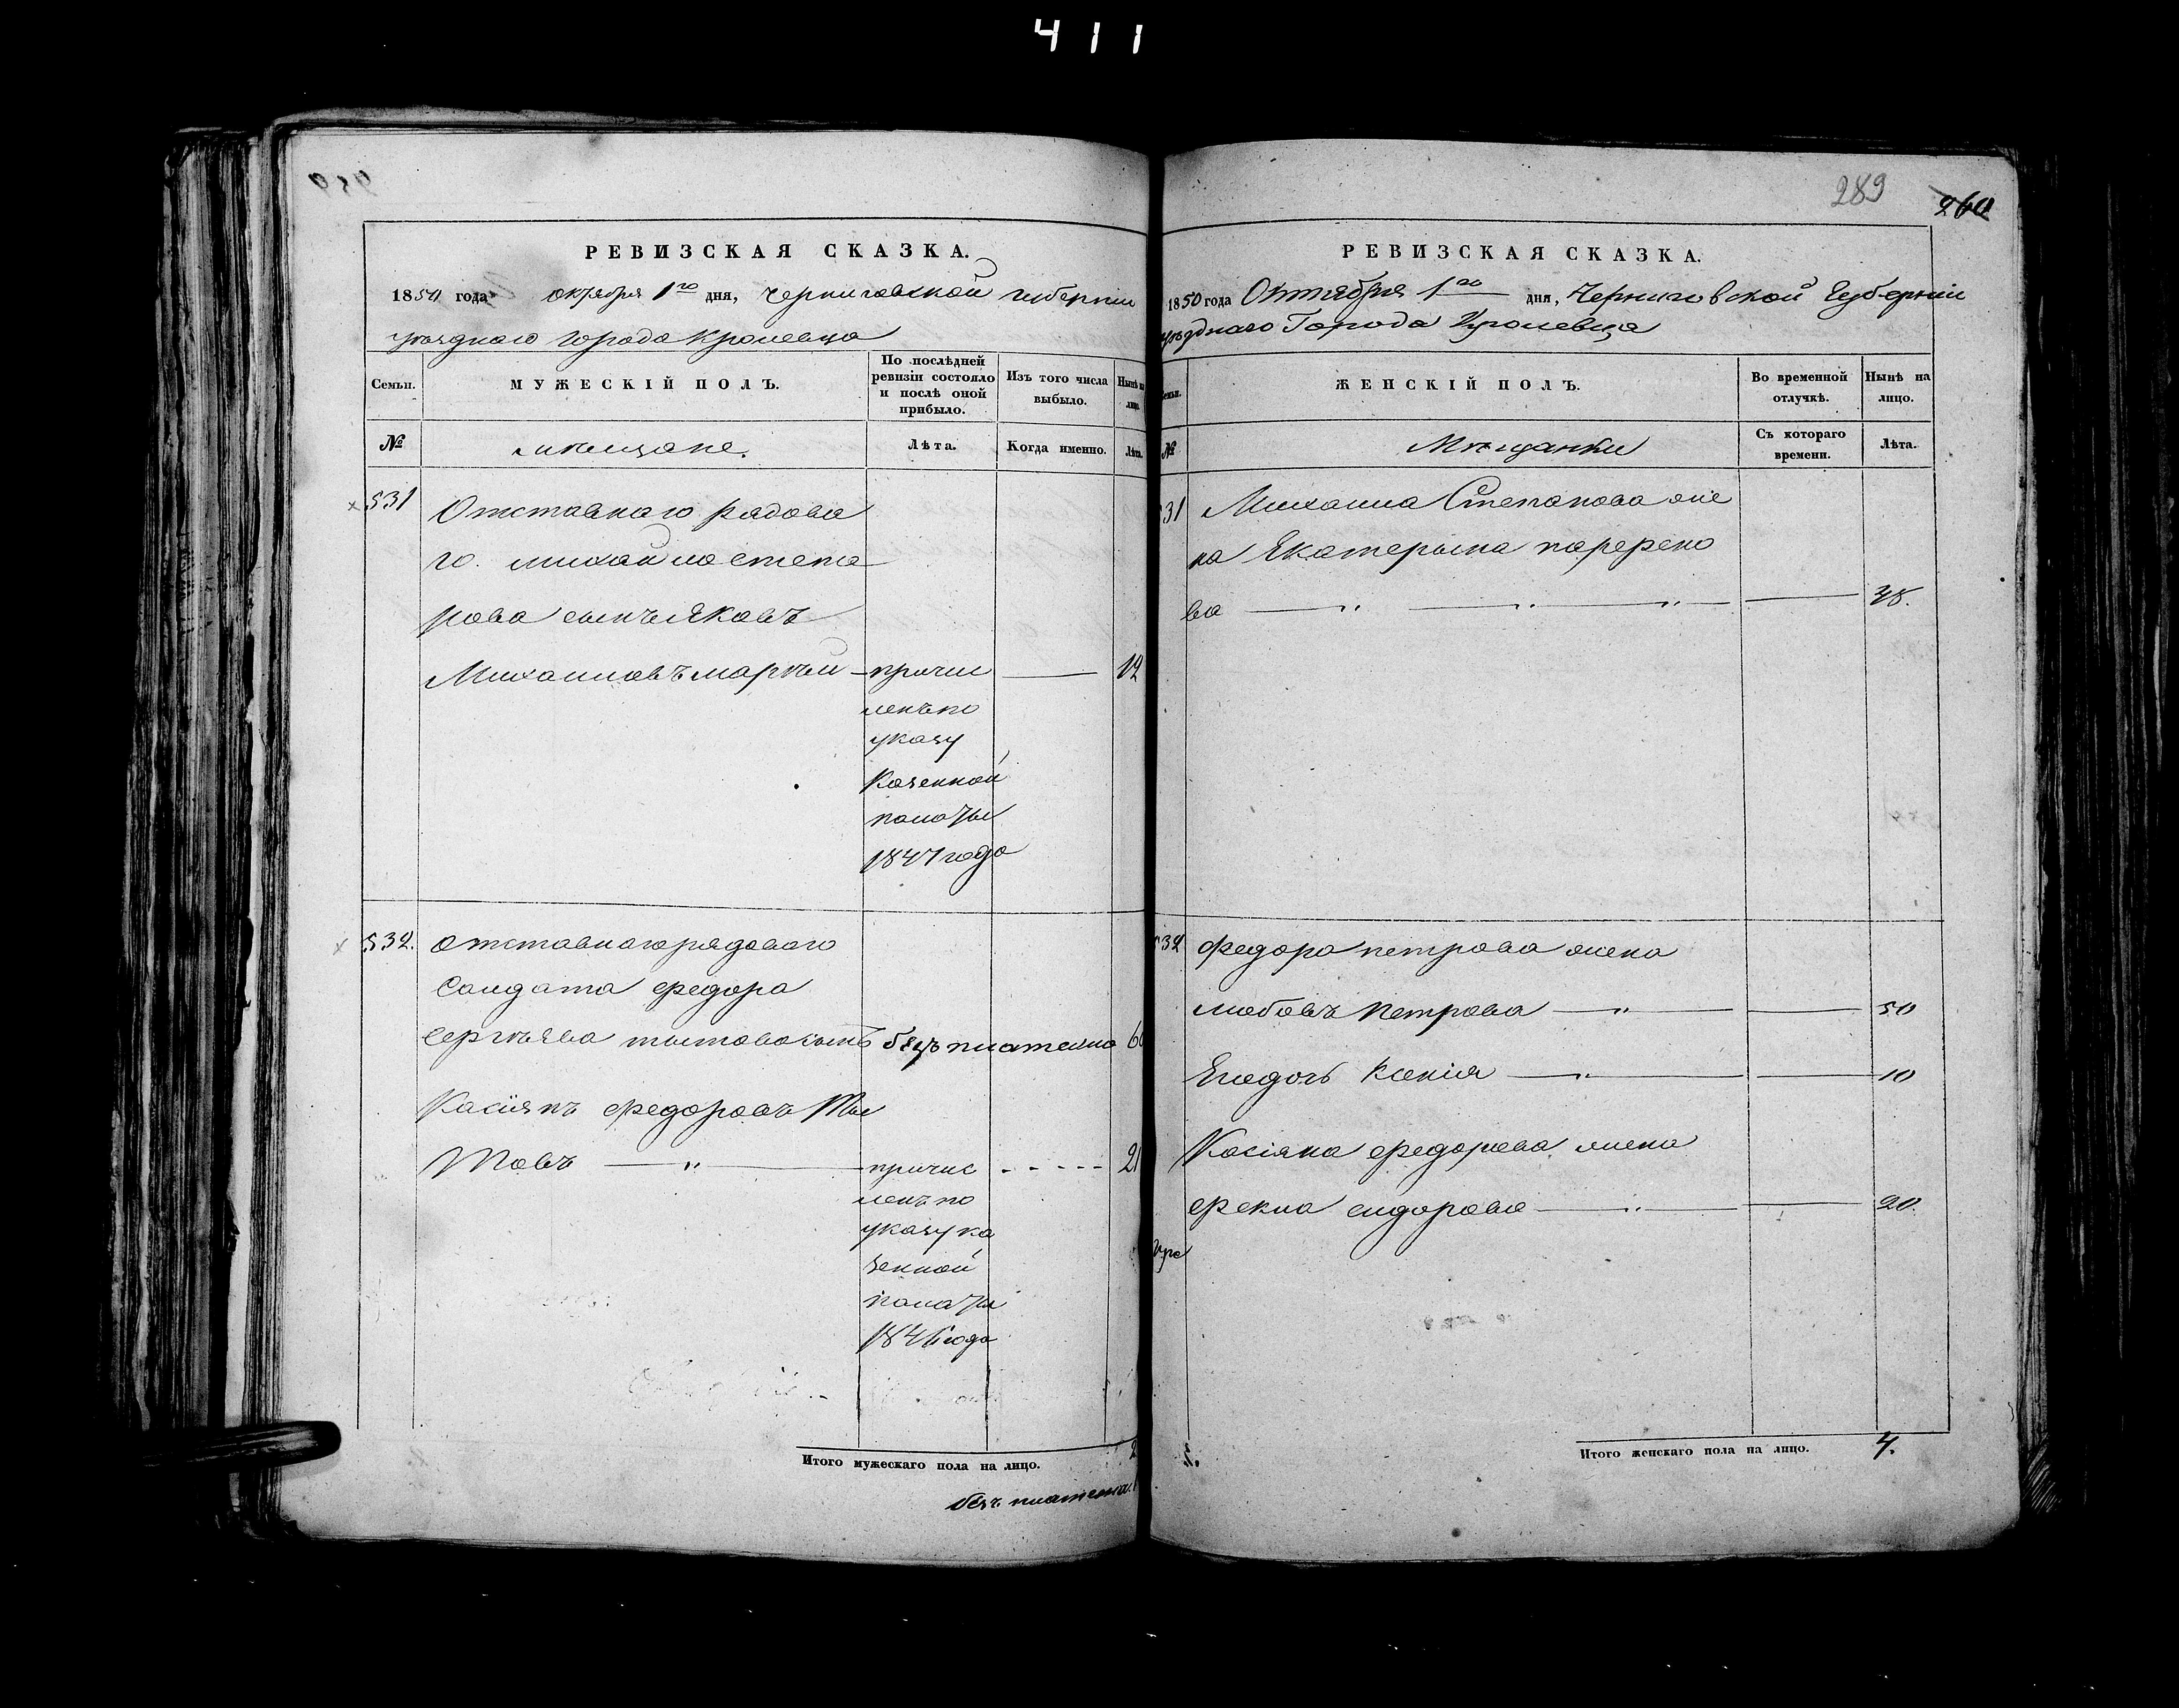 411
РЕВИЗСКАЯ СКАЗКА.
1850 года октября 1го дня, Черниговской губерніи
уѣзднаго города Кролевца
Семьи.
МУЖЕСКІЙ ПОЛЪ.
По послѣдней ревизіи состояло и послѣ оной прибыло.
Изъ того числа выбыло.
Нынѣ на лицо.
№
мѣщане.
Лѣта.
Когда именно.
Лѣта.
531
Отставнаго рядова
го Михайла
сынъ Яковъ
Михаиловъ
причис
12
ленъ по
указу
Казенной
палаты
1847 года
532.
отставнаго рядоваго
Салдата федора
Сергѣева безъ платежа
Касіянъ федоровъ Ты
товъ — „ —
причис
21
ленъ по
указу ка
зенной
палаты
1846 года
Итого мужескаго пола на лицо.
2
безъ платежа.
289
260
РЕВИЗСКАЯ СКАЗКА.
1850 года Октября 1го дня, Черниговской Губерніи
уѣзднаго Города Кролевца
Семьи.
ЖЕНСКІЙ ПОЛЪ.
Во временной отлучкѣ.
Нынѣ на лицо.
№
Мѣщанки
Съ котораго времени.
Лѣта.
531
Михаила Степанова же
на Екатерына
ва — „ — „ — „ —
38.
532
федора петрова жена
любовъ Петрова — „ —
50
Егодочь Ксенія — „ —
10
Касіяна федорова жена
фекла сидорова — „ —
20.
Итого женскаго пола на лицо.
4.